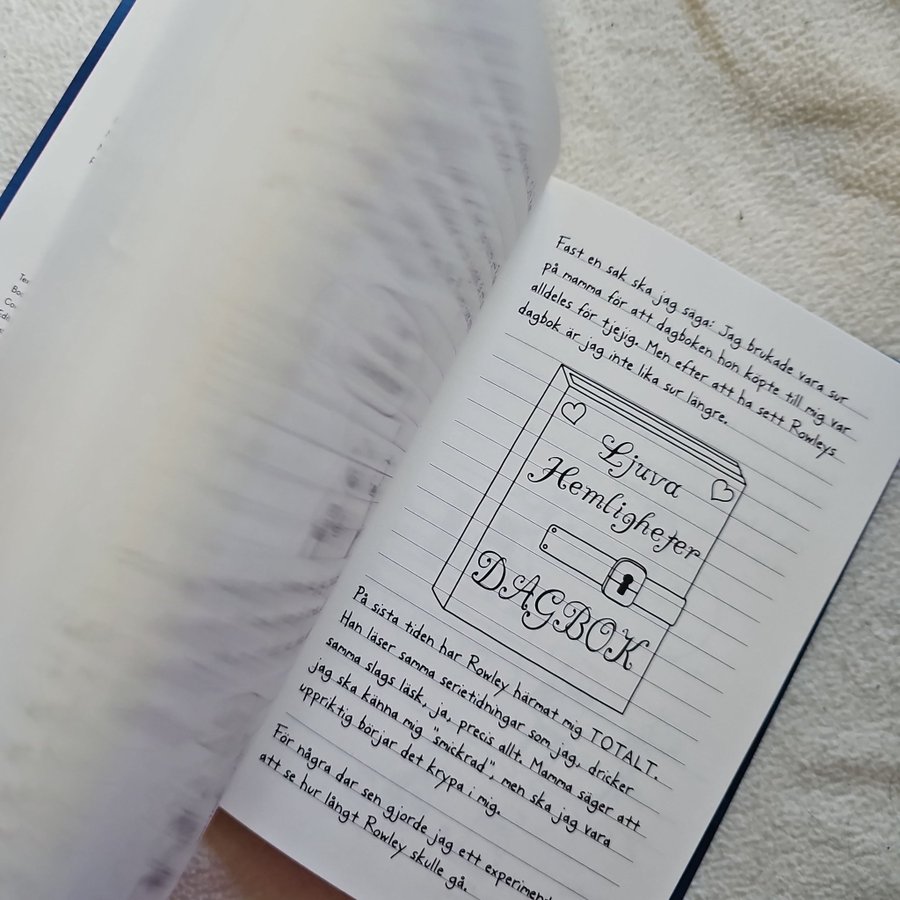 Fast en sak ska jag säga: Jag brukade vara sur
på mamma för att dagboken hon köpte till mig var
alldeles för tjejig. Men efter att ha sett Rowleys
dagbok är jag inte lika sur längre.
Ljuva
Hemligheter
DAGBOK
På sista tiden har Rowley härmat mig TOTALT.
Han läser samma serietidningar som jag, dricker
samma slags läsk, ja, precis allt. Mamma säger att
jag ska känna mig "smickrad", men ska jag vara
uppriktig börjar det krypa i mig.
För några dar sen gjorde jag ett experiment
att se hur långt Rowley skulle gå.